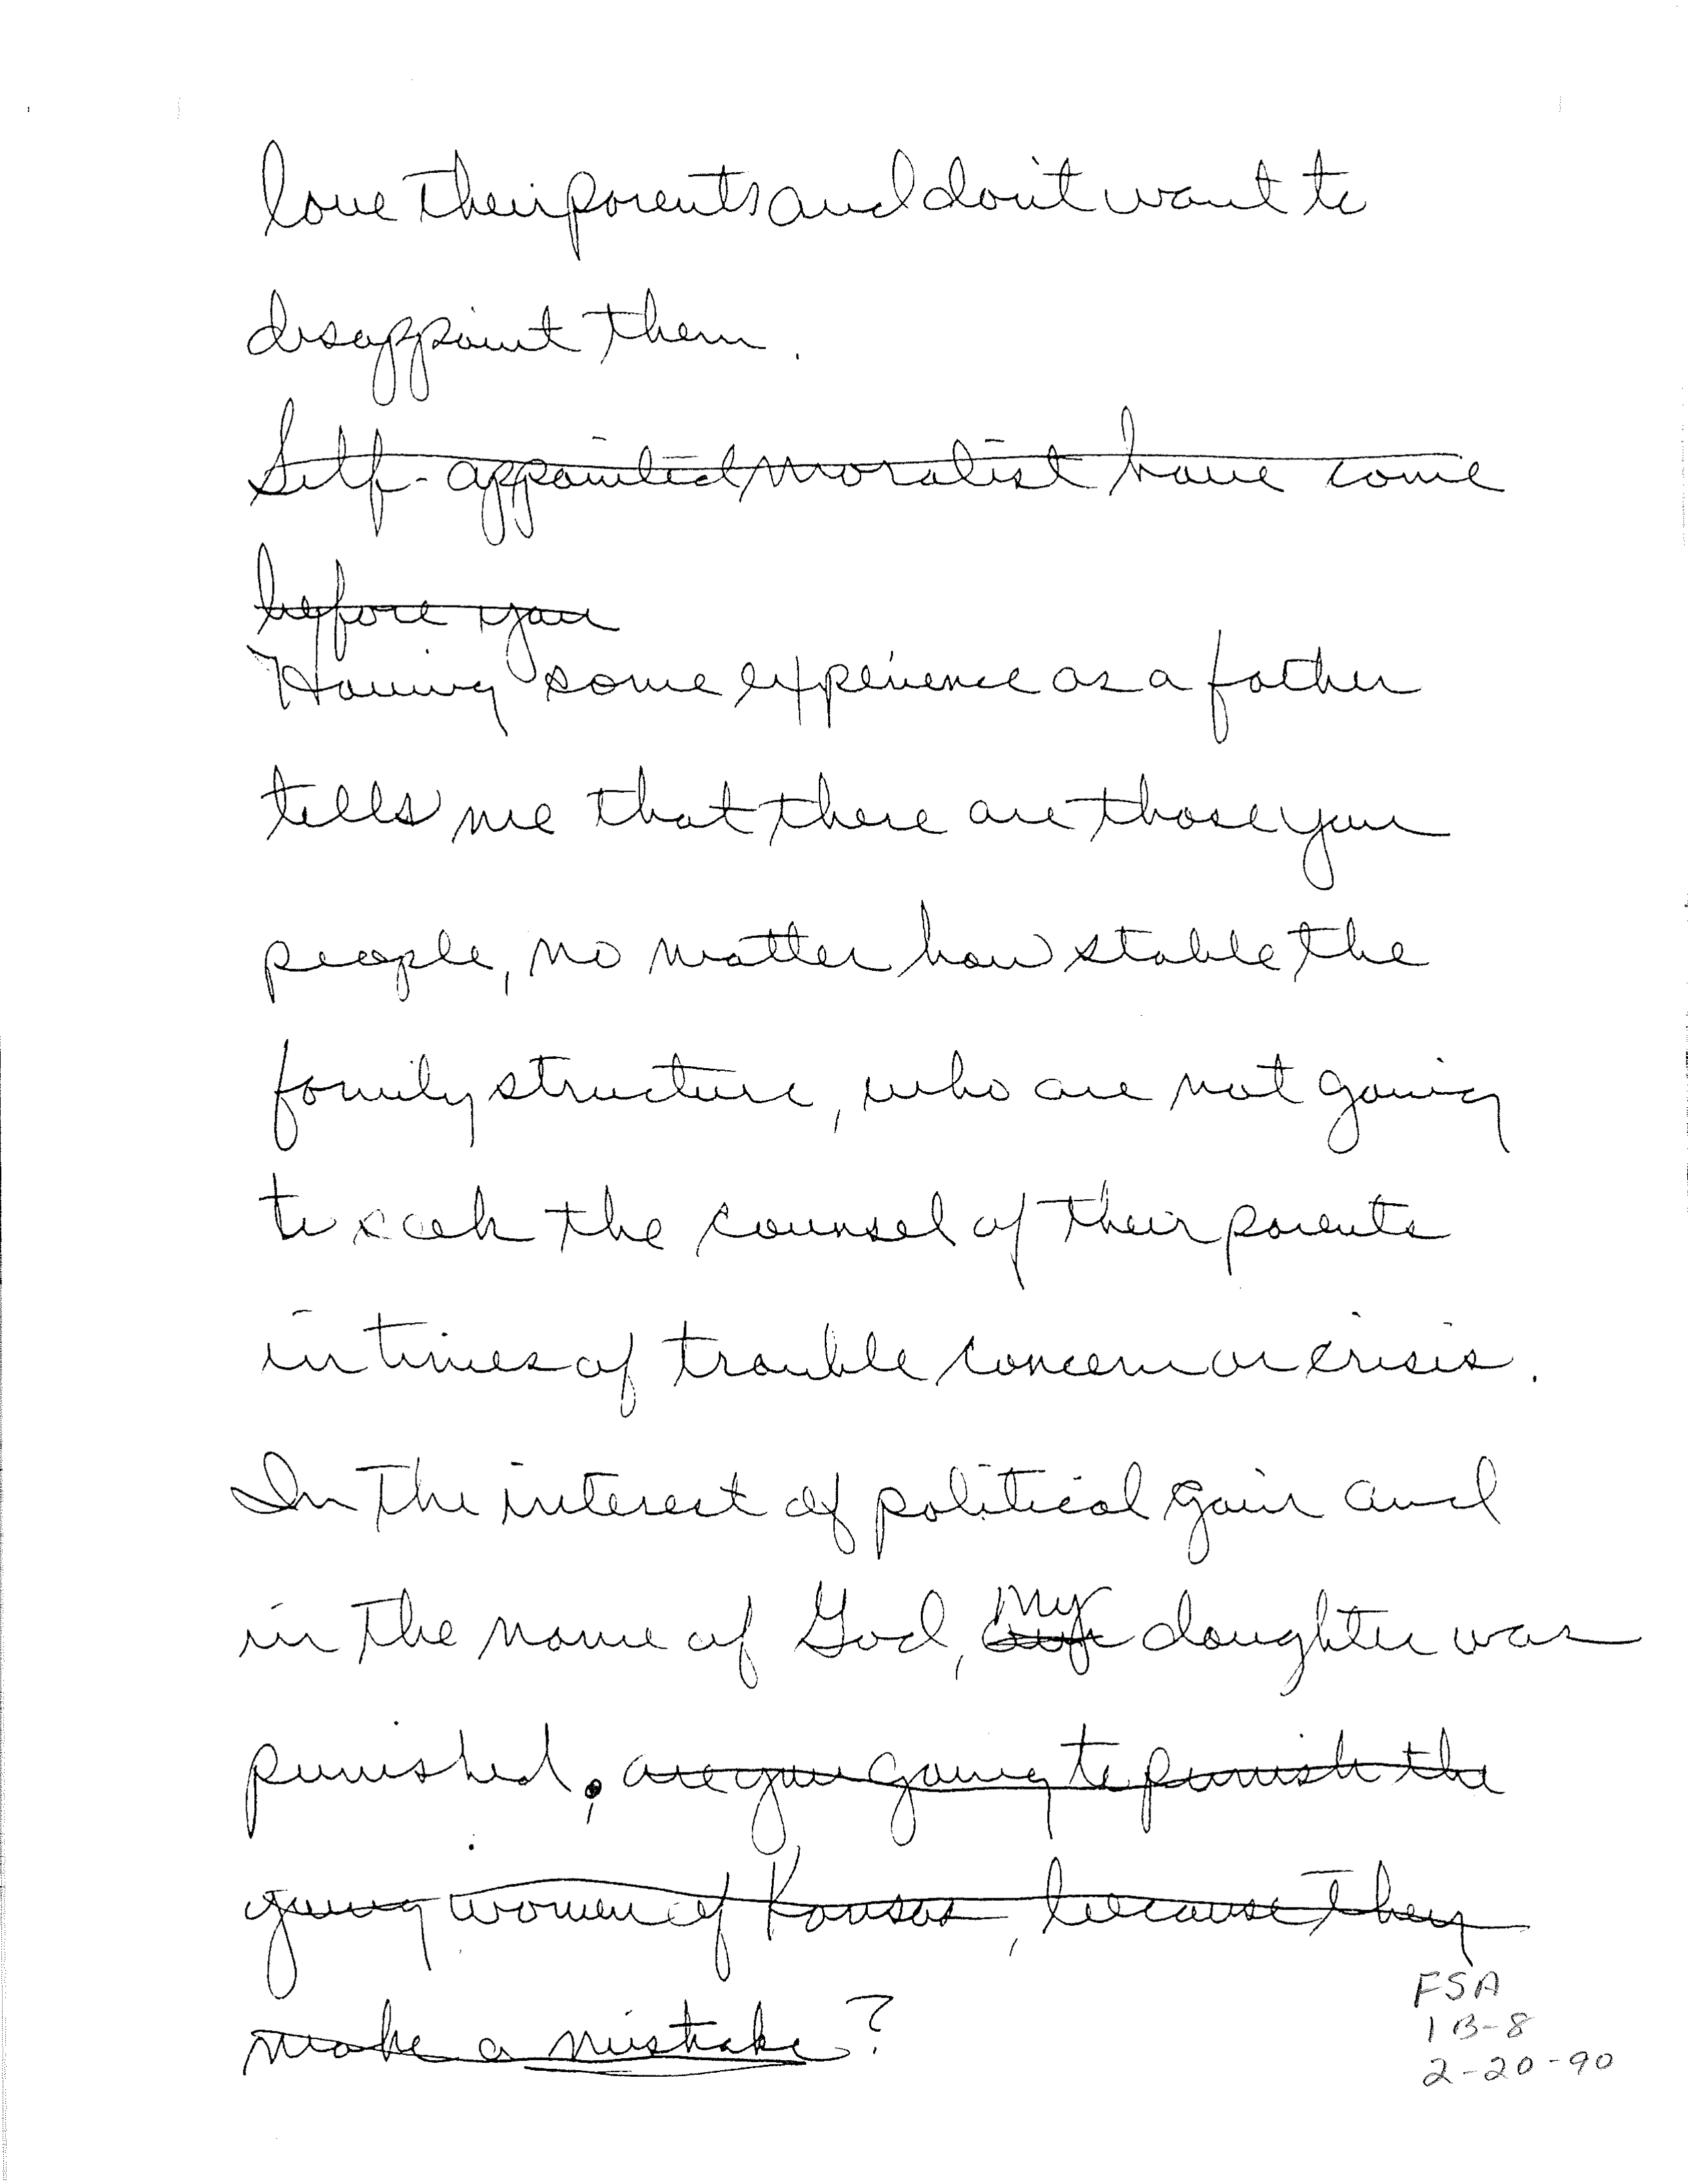 love their parents and don't want to
disappoint them.
Self-appointed moralist have come
before you
Having some experience as a father
tells me that there are those you
people, no matter how stable the
family structure, who are not going
to seek the counsel of their parents
in times of trouble concern or crisis.
In the interest of political gain and
in the name of God, my our daughter was
punished, are you going to punish the
young women of Kansas, because they
make a mistake?
FSA
1B-8
2-20-90